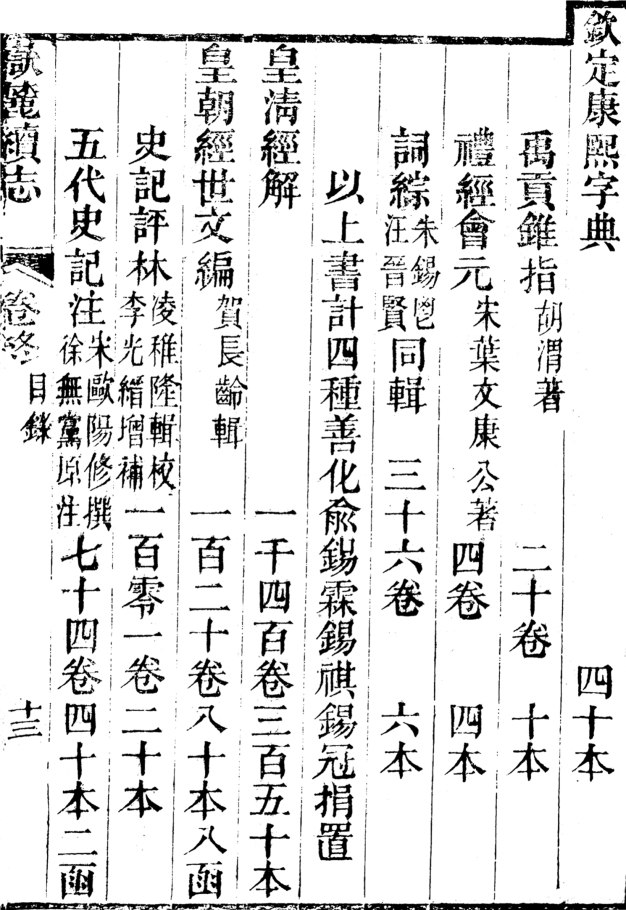 欽定康熙字典 四十本
禹貢錐指 胡渭著 二十卷 十本
禮經會元 宋葉文康公著 四卷 四本
詞綜 朱錫鬯 汪晉賢 同輯 三十六卷 六本
以上書計四種善化俞錫霖錫祺錫冠捐置
皇清經解 一千四百卷三百五十本
皇朝經世文編 賀長齡輯 一百二十卷八十本八函
史記評林 凌稚隆輯校 李光縉增補 一百零一卷二十本
五代史記注 宋歐陽修撰 徐無黨原注 七十四卷四十本二函
嶽麓續志 卷終 目錄 十三